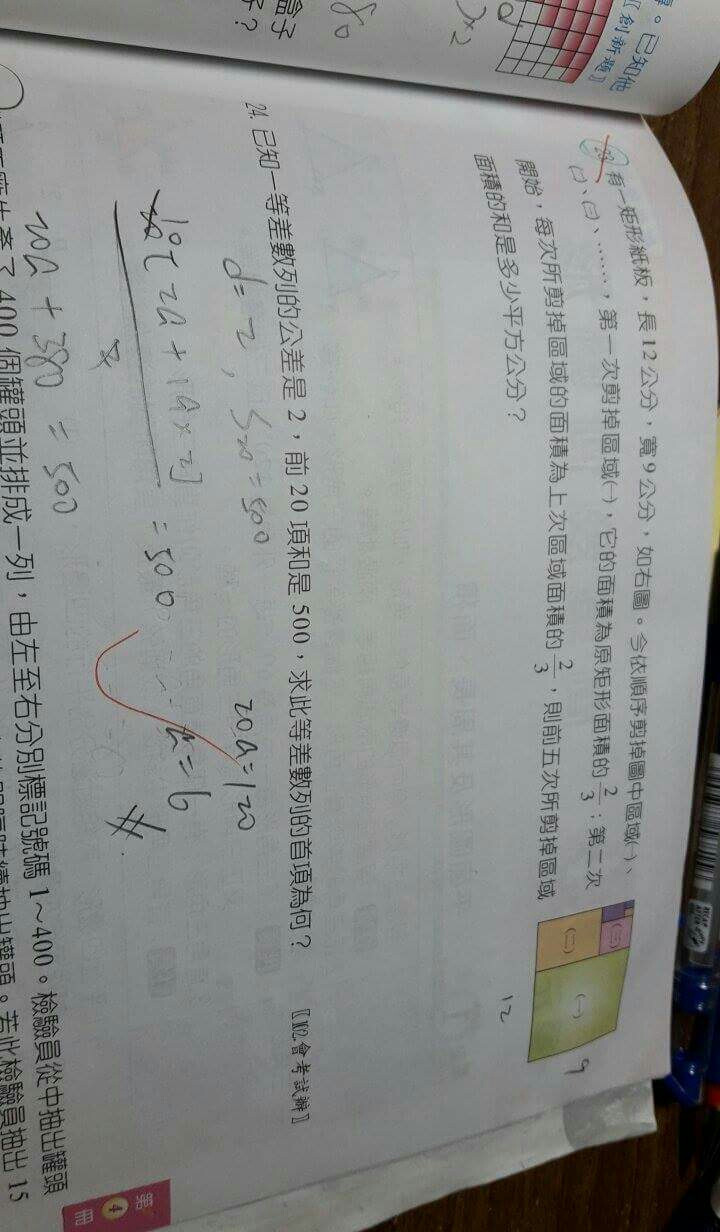 。已知他
〖創新題〗
盒子
?
80
)×2
23. 有一矩形紙板,長 12 公分,寬 9 公分,如右圖。今依順序剪掉圖中區域㈠、
㈡、㈢、……,第一次剪掉區域㈠,它的面積為原矩形面積的 2/3;第二次
開始,每次所剪掉區域的面積為上次區域面積的 2/3,則前五次所剪掉區域
面積的和是多少平方公分?
㈠
㈡
㈢
9
12
24. 已知一等差數列的公差是 2,前 20 項和是 500,求此等差數列的首項為何?
〖102.會考試辦〗
d=2, S20=500
10[2a+19×2]
=500
20a+380=500
20a=120
a=6
#
了 400 個罐頭並排成一列,由左至右分別標記號碼 1~400。檢驗員從中抽出罐頭
抽出罐頭。若此檢驗員抽出 15
第 4 冊